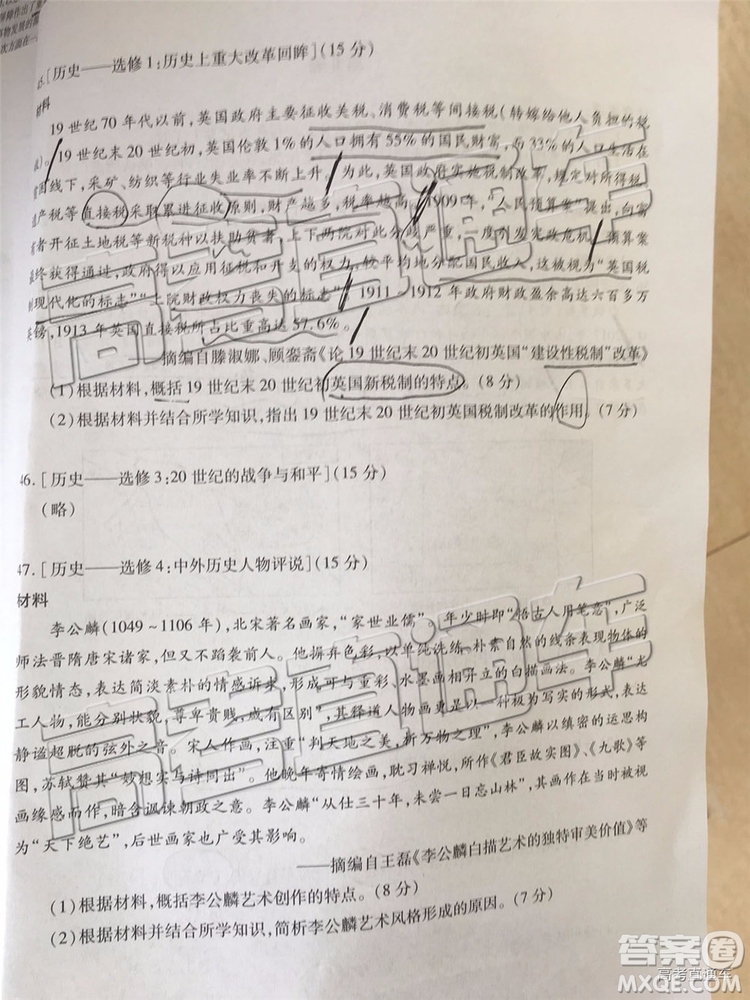 障作出了重
事物发展的
次方面在一
45.[历史——选修1:历史上重大改革回眸](15分)
材料
19世纪70年代以前,英国政府主要征收关税、消费税等间接税(转嫁给他人负担的税
)。19世纪末20世纪初,英国伦敦1%的人口拥有55%的国民财富,而33%的人口生活在
困线下,采矿、纺织等行业失业率不断上升。为此,英国政府实施税制改革,对所得税、
产税等直接税采取累进征收原则,财产越多,税率越高。1909年,“人民预算案”提出,向富
者开征土地税等新税种以扶助贫者,上下两院对此分歧严重,一度引发宪政危机。预算案
终获得通过,政府得以应用征税和开支的权力,较平均地分配国民收入,这被视为“英国税
现代化的标志”“上院财政权力丧失的标志”。1911—1912年政府财政盈余高达六百多万
镑,1913年英国直接税所占比重高达57.6%。
——摘编自滕淑娜、顾銮斋《论19世纪末20世纪初英国“建设性税制”改革》
(1)根据材料,概括19世纪末20世纪初英国新税制的特点。(8分)
(2)根据材料并结合所学知识,指出19世纪末20世纪初英国税制改革的作用。(7分)
46.[历史——选修3:20世纪的战争与和平](15分)
(略)
47.[历史——选修4:中外历史人物评说](15分)
材料
李公麟(1049~1106年),北宋著名画家,“家世业儒”,年少时即“悟古人用笔意”,广泛
师法晋隋唐宋诸家,但又不蹈袭前人。他摒弃色彩,以单纯洗练、朴素自然的线条表现物象
形貌情态,表达简淡素朴的情感诉求,开创了有别于重彩、水墨画相并立的白描画法。李公麟尤
工人物,能分别状貌,尊卑贵贱,咸有区别”,其释道人物画主要是以一种极为写实的形式,表达
静谧超脱的弦外之音。宋人作画,注重“判天地之美,析万物之理”,李公麟以缜密的运思构
图,苏轼赞其“妙想实与诗同出”。他晚年寄情绘画,耽习禅悦,所《君臣故实图》、《九歌》等
画缘感而作,暗含讽谏朝政之意。李公麟“从仕三十年,未尝一日忘山林”,其白描人物画被誉
为“天下绝艺”,后世画家均受其影响。
——摘编自王磊《李公麟白描艺术的独特审美价值》等
(1)根据材料,概括李公麟艺术创作的特点。(8分)
(2)根据材料并结合所学知识,简析李公麟艺术风格形成的原因。(7分)
高考直通车
答案圈
高考直通车
MXQE.COM